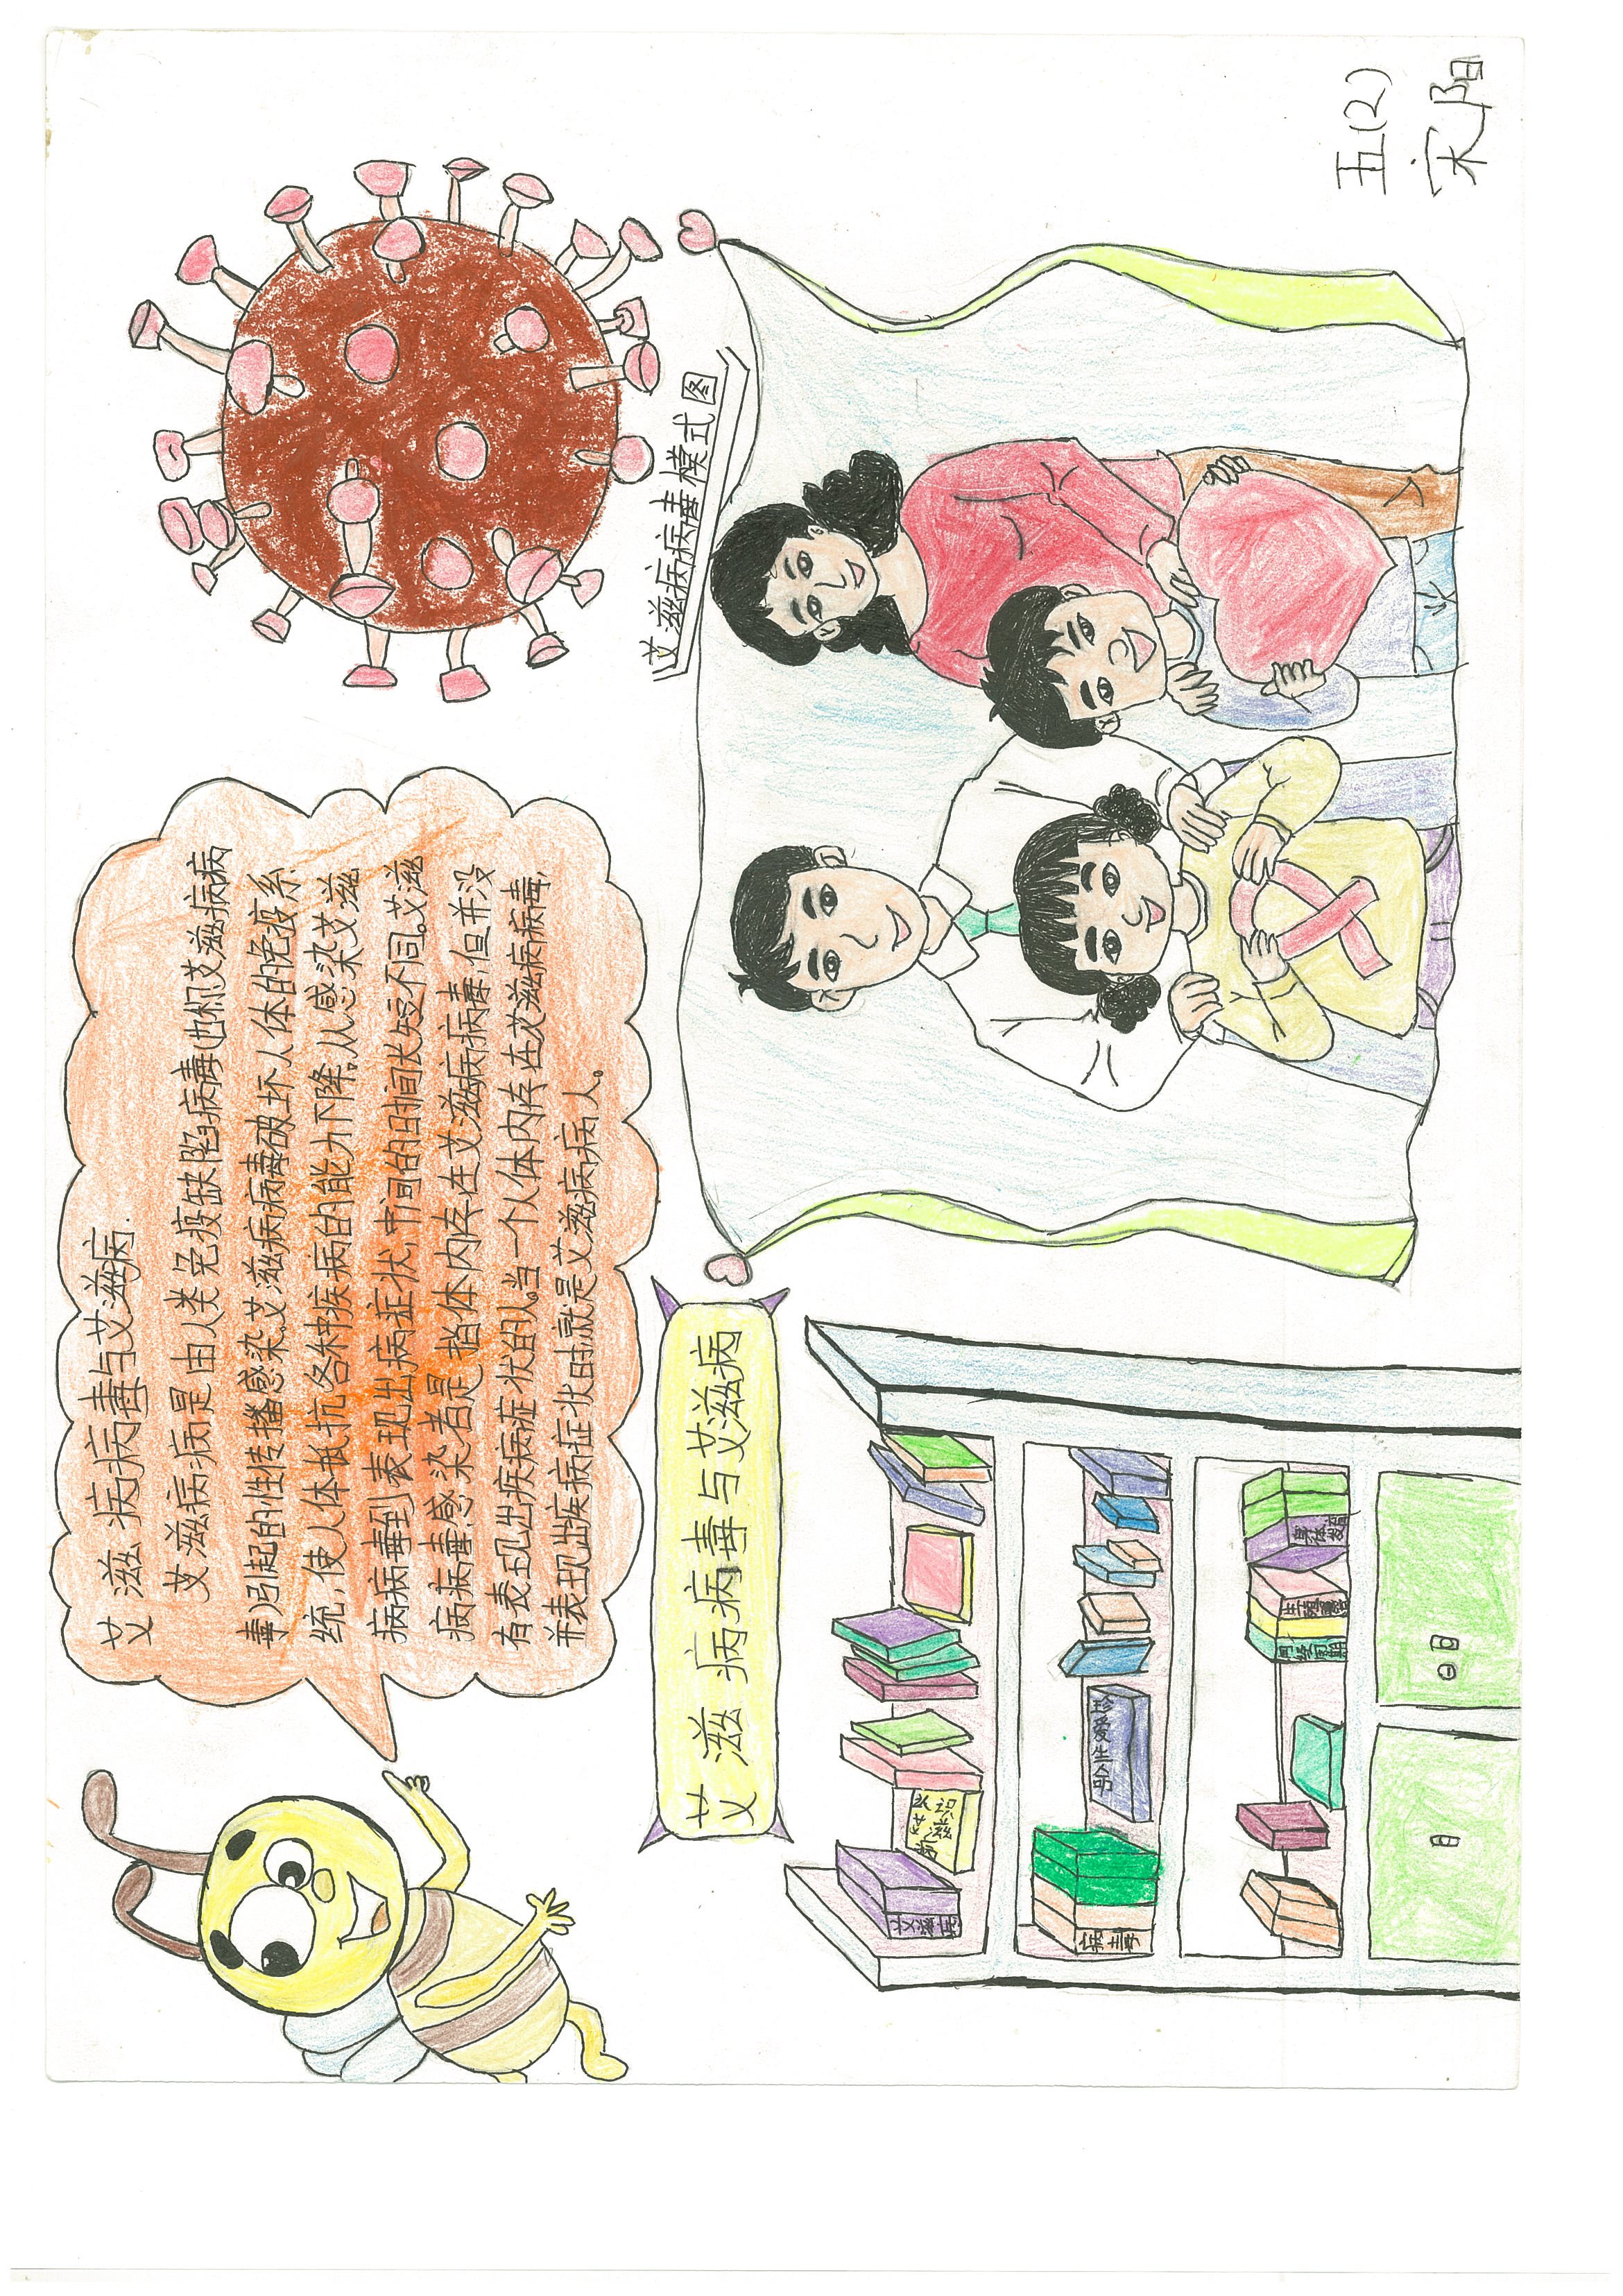 艾滋病病毒与艾滋病.
艾滋病病是由人类免疫缺陷病毒(也称艾滋病病
毒)引起的性传播感染。艾滋病病毒破坏人体的免疫系
统,使人体抵抗各种疾病的能力下降。从感染艾滋
病病毒到表现出病症状,中间的时间长短不同。艾滋
病病毒感染者是指体内存在艾滋病病毒,但并没
有表现出疾病症状的人。当一个人体内存在艾滋病病毒,
并表现出疾病症状时就是艾滋病病人。
艾滋病病毒模式图
艾滋病病毒与艾滋病
艾滋病
认识
艾滋
病
病毒
珍爱生命
身体
教育
五(2)
宋阳